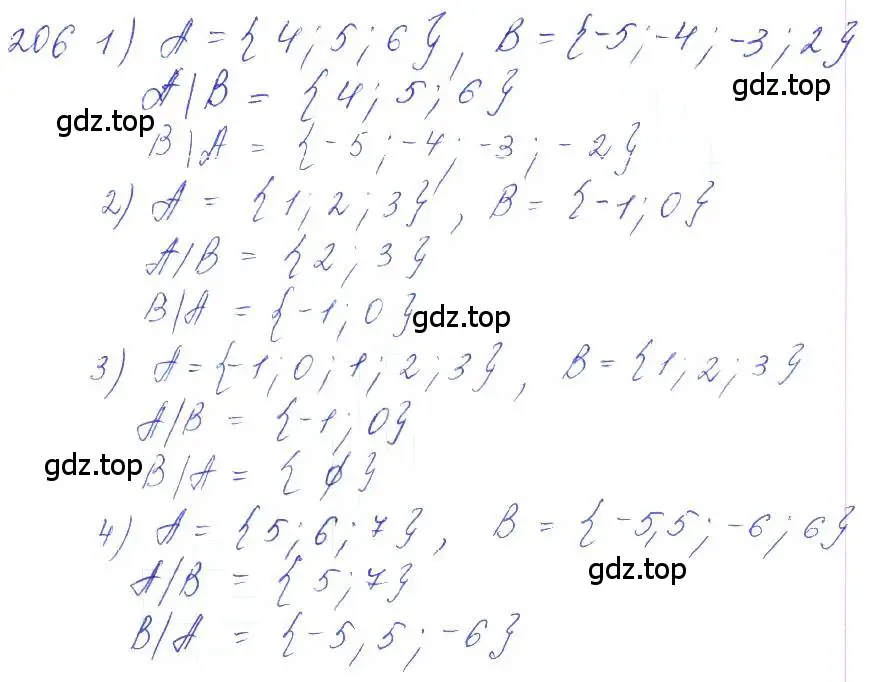 206 1) A = {4; 5; 6}, B = {-5; -4; -3; 2}
gdz.top
A|B = {4; 5; 6}
gdz.top
B|A = {-5; -4; -3; -2}
2) A = {1; 2; 3}, B = {-1; 0}
A/B = {2; 3}
B/A = {-1; 0}
gdz.top
3) A = {-1; 0; 1; 2; 3}, B = {1; 2; 3}
A/B = {-1; 0}
gdz.top
B/A = {∅}
4) A = {5; 6; 7}, B = {-5,5; -6; 6}
A/B = {5; 7}
gdz.top
B/A = {-5,5; -6}